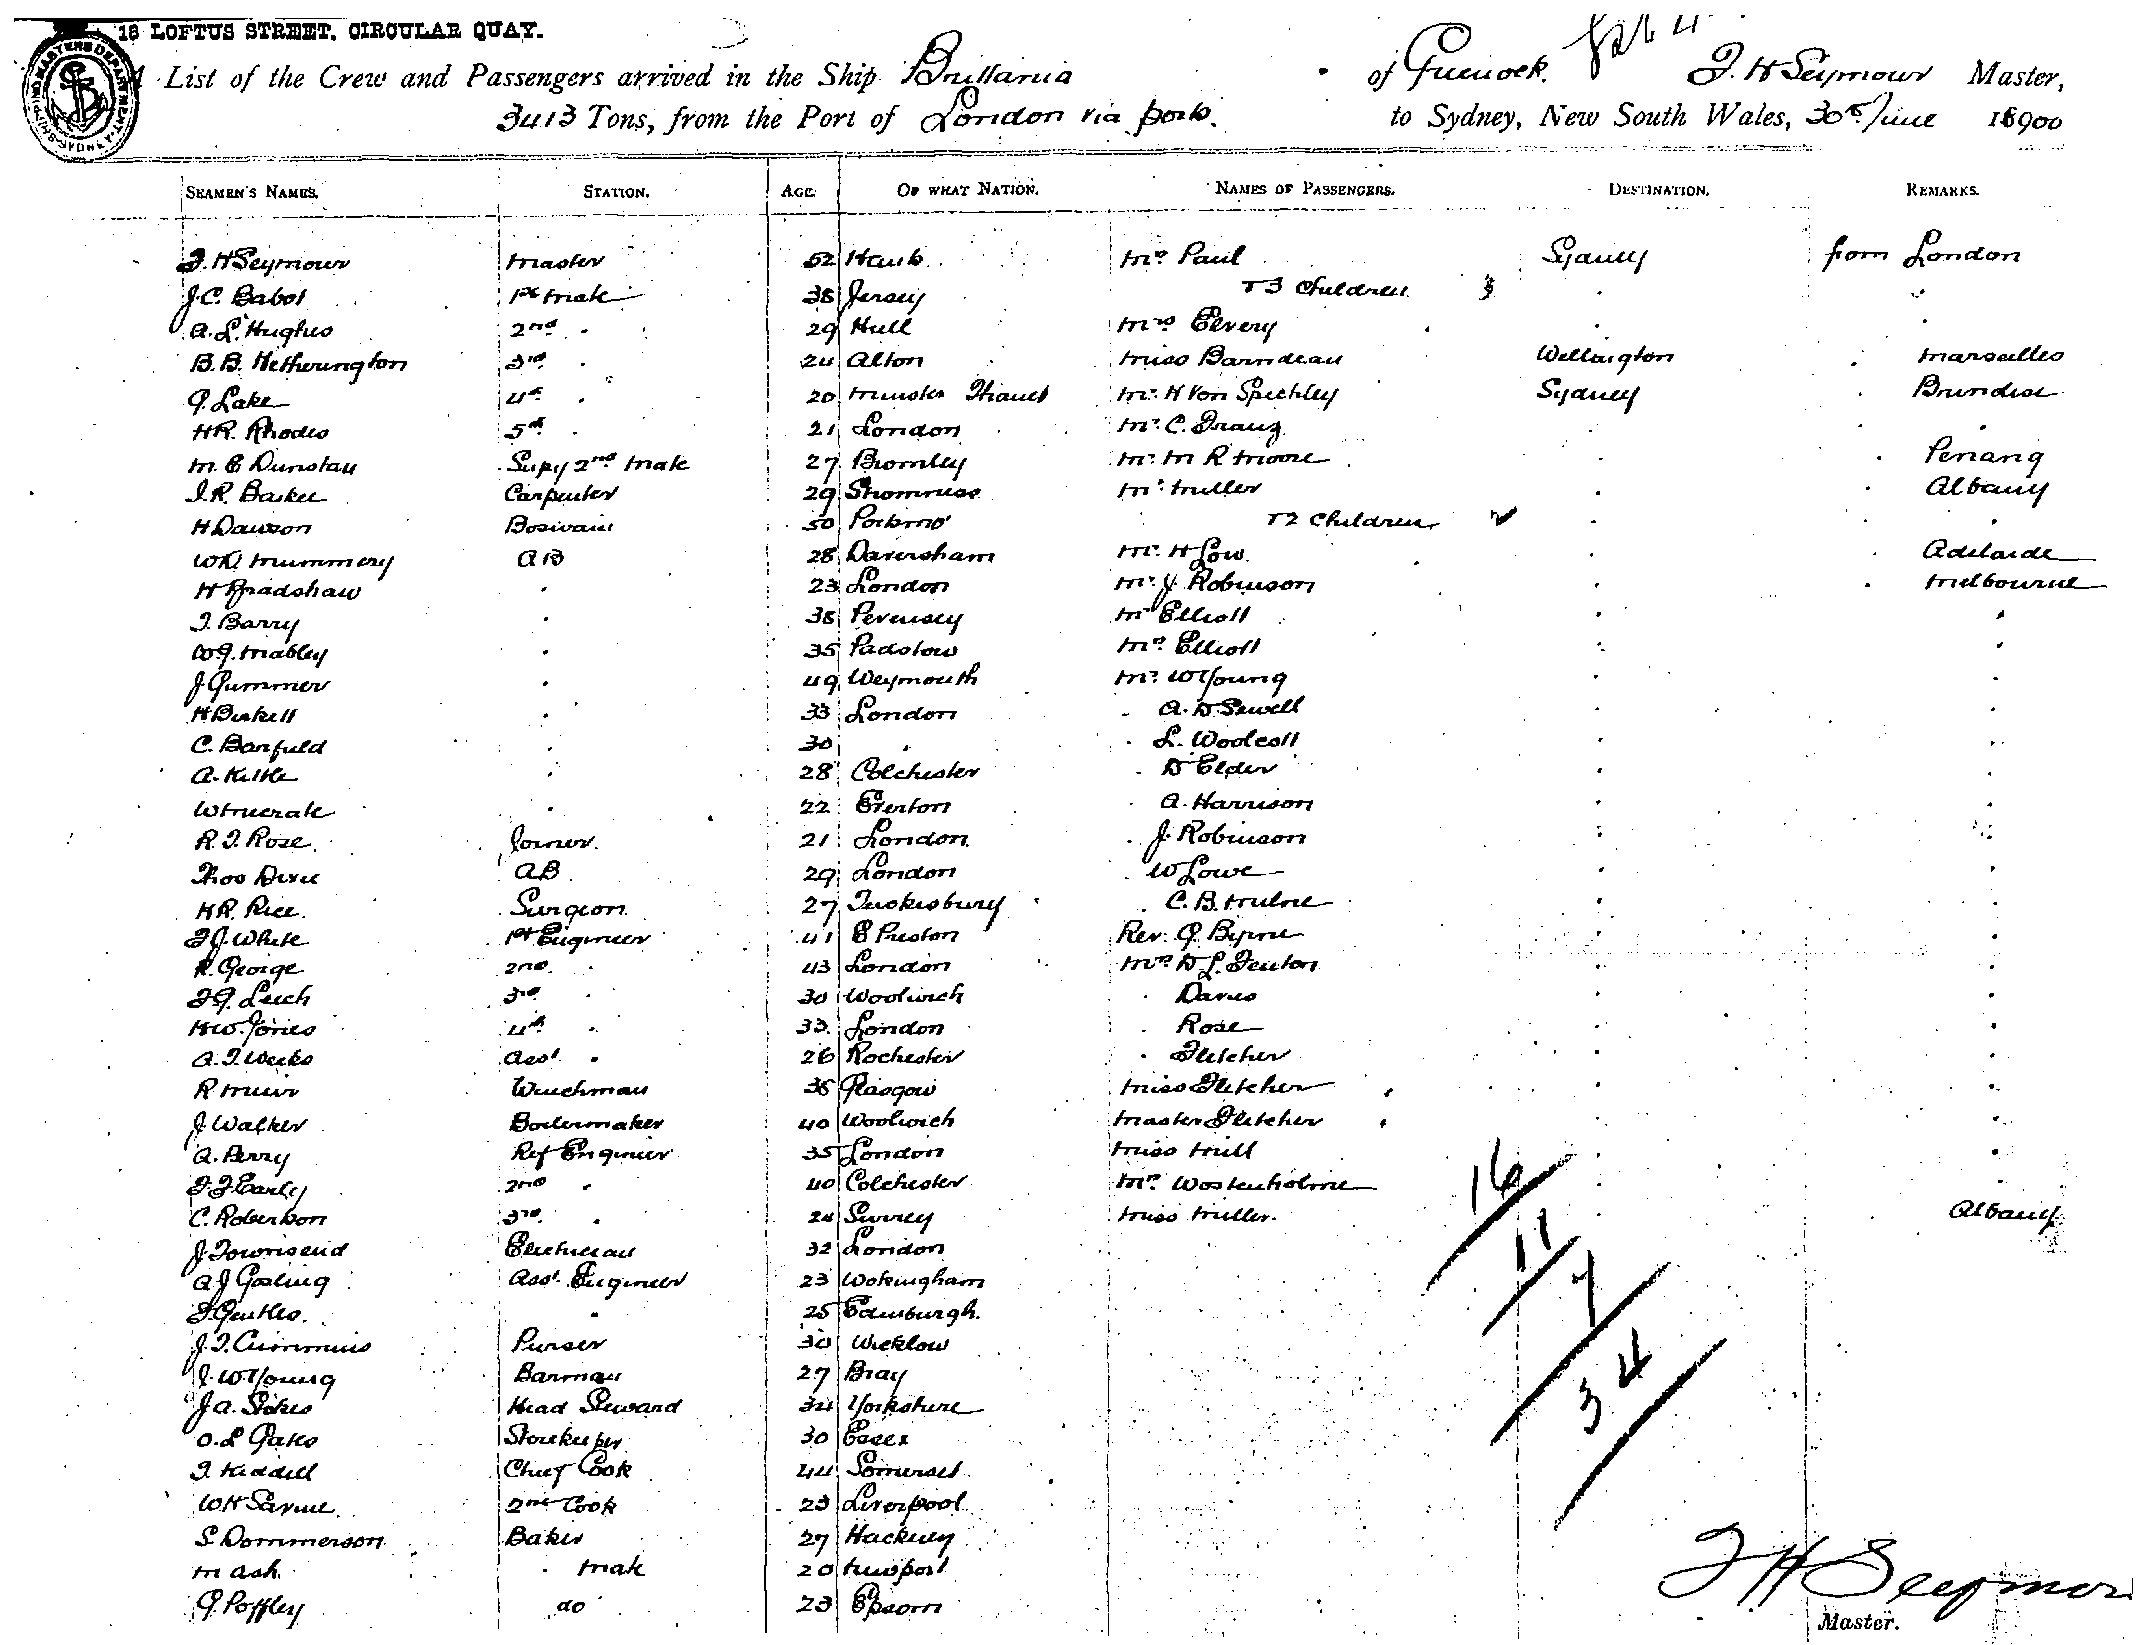 18 LOFTUS STREET, CIRCULAR QUAY.
SHIPPING MASTERS DEPARTMENT SYDNEY
A List of the Crew and Passengers arrived in the Ship Brittania of Greenock. F. H Seymour Master,
3413 Tons, from the Port of London via ports. to Sydney, New South Wales, 30th June 1900
SEAMEN'S NAMES. STATION. AGE OF WHAT NATION. NAMES OF PASSENGERS. DESTINATION. REMARKS.
F. H Seymour Master 52 Hants Mrs Paul Sydney from London
J. C. Babot 1st Mate 38 Jersey & 3 Children 3 " "
A. L. Hughes 2nd " 29 Hull Mrs Elvery "
B. B. Hetherington 3rd " 24 Alton Miss Barndeau Wellington " Marseilles
G. Lake 4th " 20 Minster Thanet Mr. H Von Spechley Sydney " Brindisi
H R. Rhodes 5th " 21 London Mr. C. Franz " "
M. E Dunstan Supy 2nd Mate 27 Bromley Mr. M R Moore " " Penang
J. R. Baskee Carpenter 29 Stromness Mr. Miller " " Albany
H Dawson Boswain 50 Portsmo' & 2 Children 2 " "
W D. Mummery A B 28 Daversham Mr. H Low " " Adelaide
H Bradshaw " 23 London Mr. J. Robinson " " Melbourne
T. Barry " 38 Pevensey Mr Elliott " "
W G. Mabley " 35 Padstow Mrs Elliott " "
J. Gummer " 49 Weymouth Mr. W Young " "
H Birkett " 33 London " A. D. Sewell " "
C. Banfield " 30 " " L. Woolcott " "
A. Kittle " 28 Colchester " D Elder " "
W " 22 " A. Harrison " "
R. T. Rose. Joiner. 21 London. J. Robinson " "
Thos Dixie AB. 29 London W Lowe " "
H R. Rice. Surgeon 27 Tuckesbury " C. B. Milne " "
F J. White 1st Engineer 41 E Preston Rev. G. Byrne " "
R. George 2nd " 43 London Mrs D L. Fenton " "
F G. Leech 3rd " 30 Woolwich " Davis " "
H W. Jones 4th " 33 London " Rose " "
A. T. Weeks Asst " 26 Rochester " Fletcher " "
R Muir Winchman 38 Glasgow Miss Fletcher " "
J. Walker Boilermaker 40 Woolwich Master Fletcher " "
A. Perry Ref Engineer 35 London Miss Mill " "
F. F. Earley 2nd " 40 Colchester Mrs Wostenholme "
C. Robertson 3rd " 24 Surrey Miss Miller. " Albany
J. Townsend Electrician 32 London
A J Gosling Asst. Engineer 23 Wokingham
F. Gentles. " 25 Edinburgh.
J. T. Cummins Purser 30 Wicklow
J. W Young Barman 27 Bray
J A. Stokes Head Steward 34 Yorkshire
O. L Oates Storekeeper 30 Essex
T. Kiddell Chief Cook 44 Somerset
W H Savine 2nd Cook 23 Liverpool
S Dommerson Baker 27 Hackney
M Ash " Mate 20 Newport
G. Poffley do 23 Epsom
16
11
7
34
F H Seymour
Master.